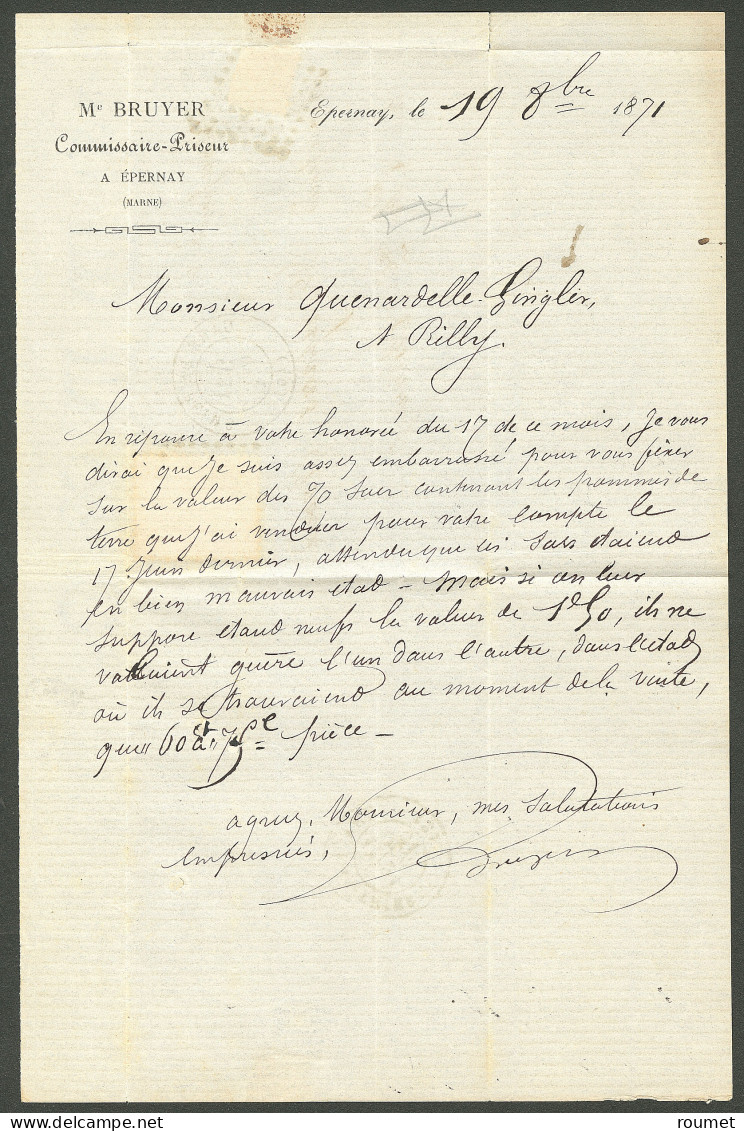 Mᵉ BRUYER
Commissaire-Priseur
A ÉPERNAY
(MARNE)
Epernay, le 19 8bre 1871
Monsieur Quenardelle-Gingler,
A Rilly.
En réponse à votre honorée du 17 de ce mois, Je vous
dirai que Je suis assez embarrassé pour vous fixer
sur la valeur des 70 sacs contenant les pommes de
terre que J'ai vendues pour votre compte le
17 Juin dernier, attendu que ces sacs étaient
en bien mauvais état - Mais si on leur
suppose étant neufs la valeur de 1f 50, ils ne
valaient guère l'un dans l'autre, dans l'état
où ils se trouvaient au moment de la vente,
que 60 à 75c pièce -
agréez, Monsieur, mes salutations
empressées,
Bruyer
roumet.fr